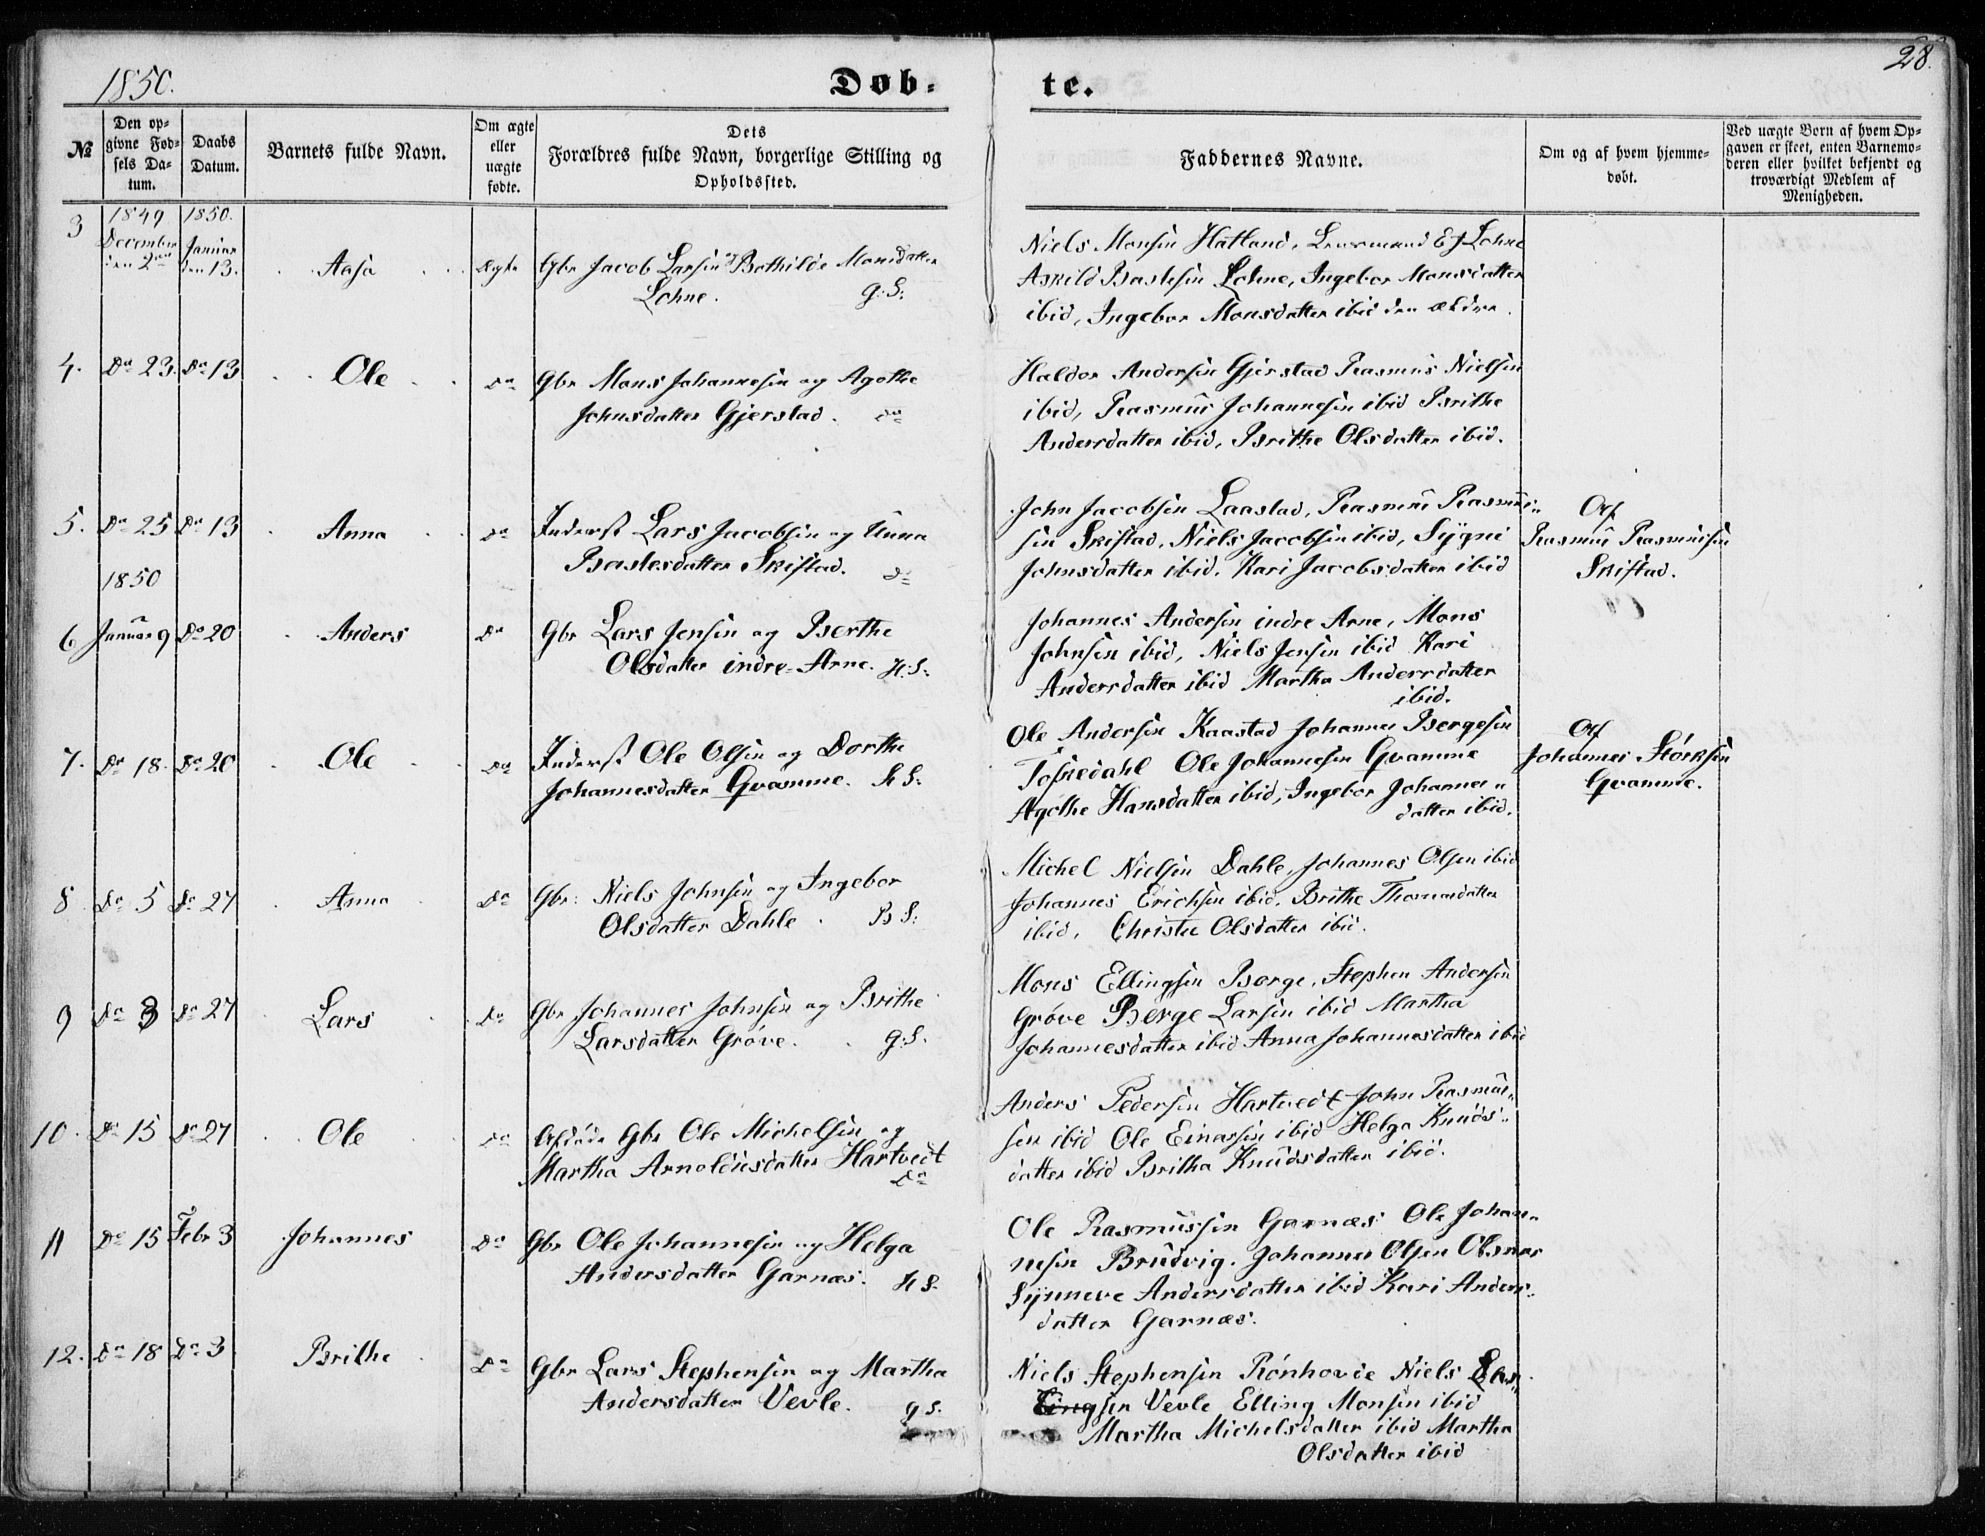 1850.
Døb-
te.
28.
№
Den op-
givne Fød-
sels Da-
tum.
Daabs
Datum.
Barnets fulde Navn.
Om ægte
eller
uægte
fødte.
Dets
Forældres fulde Navn, borgerlige Stilling og
Opholdssted.
Faddernes Navne.
Om og af hvem hjemme-
døbt.
Ved uægte Børn af hvem Op-
gaven er skeet, enten Barnemo-
deren eller hvilket bekjendt og
troværdigt Medlem af
Menigheden.
3
1849
December
den 2den
1850.
Januar
den 13.
Aasa
Ægte
Gbr Jacob Larsen og Bothilde Monsdatter
Lohne. g:S:
Niels Monsen Hatland, Lensmand Lohne
Askild Bastesen Lohne, Ingebor Monsdatter
ibid, Ingebor Monsdatter ibid den ældre.
4.
Do 23.
Do 13
Ole
Do
Gbr Mons Johannesen og Agothe
Johnsdatter Gjerstad. do
Haldor Andersen Gjerstad Rasmus Nielsen
ibid, Rasmus Johannesen ibid Brithe
Andersdatter ibid, Brithe Olsdatter ibid.
5.
Do 25
Do 13
Anna
Do
Inderst Lars Jacobsen og Anna
Bastesdatter Skistad. Do
John Jacobsen Laastad, Rasmus Rasmus-
sen Skistad, Niels Jacobsen ibid, Sygni
Johnsdatter ibid, Kari Jacobsdatter ibid
Af
Rasmus Rasmussen
Skistad.
1850
6
Januar 9
Do 20
Anders
Do
Gbr Lars Jensen og Berthe
Olsdatter indre-Arne. H.S:
Johannes Andersen indre Arne, Mons
Johnsen ibid, Niels Jensen ibid Kari
Andersdatter ibid Martha Andersdatter
ibid.
7.
Do 18.
Do 20
Ole
Do
Inderst Ole Olsen og Dorthe
Johannesdatter Gvamme. H S:
Ole Andersen Kaastad Johannes Bergesen
Tossedahl Ole Johannesen Gvamme
Agothe Hansdatter ibid, Ingebor Johannes-
datter ibid.
Af
Johannes Størksen
Gvamme.
8
Do 5
Do 27
Anna
Do
Gbr: Niels Johnsen og Ingebor
Olsdatter Dahle. B S:
Michel Nielsen Dahle, Johannes Olsen ibid
Johannes Erichsen ibid, Brithe Thomasdatter
ibid, Christie Olsdatter ibid.
9
Do 3
Do 27
Lars
Do
Gbr Johannes Johnsen og Brithe
Larsdatter Grøve. g.S.
Mons Ellingsen Borge, Stephen Andersen
Grøve Berge Larsen ibid Martha
Johannesdatter ibid Anna Johannesdatter ibid
10.
Do 15
Do 27
Ole
Do
Afdøde Gbr Ole Michelsen og
Martha Arnoldusdatter Hartvedt
Do
Anders Pedersen Hartvedt John Rasmus-
sen ibid Ole Einarsen ibid Helga Knuds-
datter ibid Britha Knudsdatter ibid.
11
Do 15
Febr 3
Johannes
Do
Gbr Ole Johannesen og Helga
Andersdatter Garnæs. H S.
Ole Rasmussen Garnæs Ole Johan-
nesen Brudvig. Johannes Olsen
Synneve Andersdatter ibid Kari Anders-
datter Garnæs.
12.
Do 18
Do 3
Brithe
Do
Gbr Lars Stephensen og Martha
Andersdatter Vevle. g S.
Niels Stephensen Rønhovde Niels
Vevle Elling Monsen ibid
Martha Michelsdatter ibid Martha
Olsdatter ibid